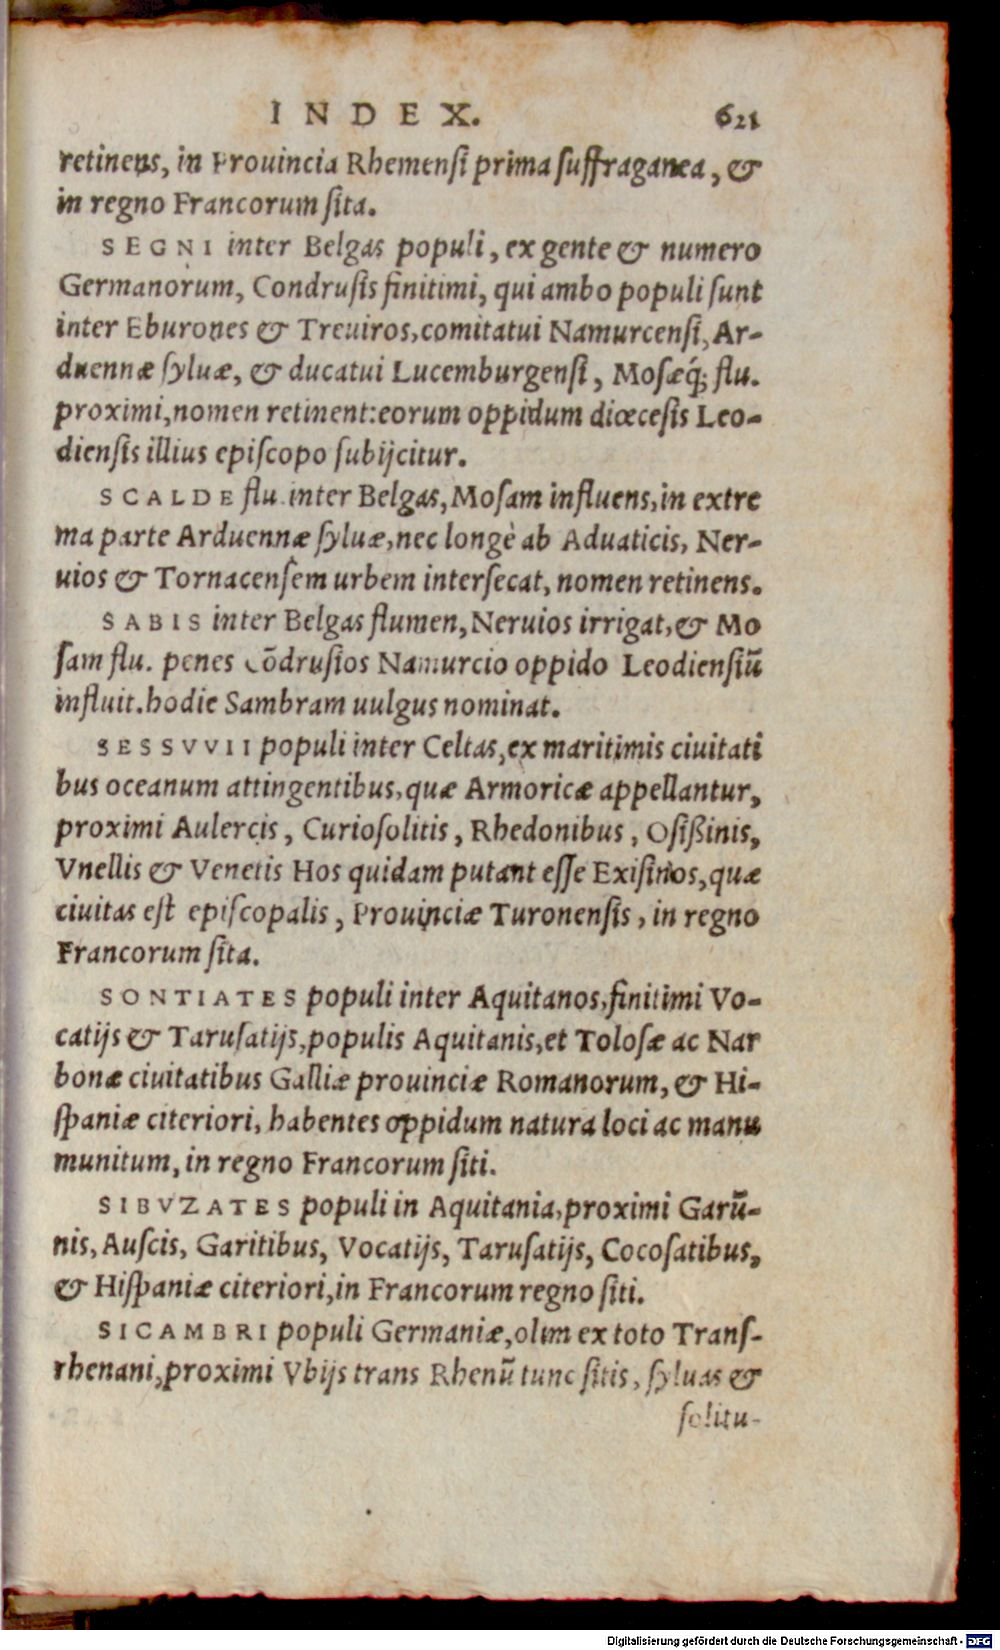 INDEX. 621
retinens, in Prouincia Rhemensi prima suffraganea, &
in regno Francorum sita.
SEGNI inter Belgas populi, ex gente & numero
Germanorum, Condrusis finitimi, qui ambo populi sunt
inter Eburones & Treuiros, comitatui Namurcensi, Ar-
duennæ syluæ, & ducatui Lucemburgensi, Mosæq́; flu.
proximi, nomen retinent: eorum oppidum diœcesis Leo-
diensis illius episcopo subijcitur.
SCALDE flu. inter Belgas, Mosam influens, in extre
ma parte Arduennæ syluæ, nec longè ab Aduaticis, Ner-
uios & Tornacensem urbem intersecat, nomen retinens.
SABIS inter Belgas flumen, Neruios irrigat, & Mo
sam flu. penes Cōdrusios Namurcio oppido Leodiensiū
influit. hodie Sambram uulgus nominat.
SESSVVII populi inter Celtas, ex maritimis ciuitati
bus oceanum attingentibus, quæ Armoricæ appellantur,
proximi Aulercis, Curiosolitis, Rhedonibus, Osißinis,
Vnellis & Venetis Hos quidam putant esse Exisinos, quæ
ciuitas est episcopalis, Prouinciæ Turonensis, in regno
Francorum sita.
SONTIATES populi inter Aquitanos, finitimi Vo-
catijs & Tarusatijs, populis Aquitanis, et Tolosæ ac Nar
bonæ ciuitatibus Galliæ prouinciæ Romanorum, & Hi-
spaniæ citeriori, habentes oppidum natura loci ac manu
munitum, in regno Francorum siti.
SIBVZATES populi in Aquitania, proximi Garū-
nis, Auscis, Garitibus, Vocatijs, Tarusatijs, Cocosatibus,
& Hispaniæ citeriori, in Francorum regno siti.
SICAMBRI populi Germaniæ, olim ex toto Trans-
rhenani, proximi Vbijs trans Rhenū tunc sitis, syluas &
solitu-
Digitalisierung gefördert durch die Deutsche Forschungsgemeinschaft - DFG